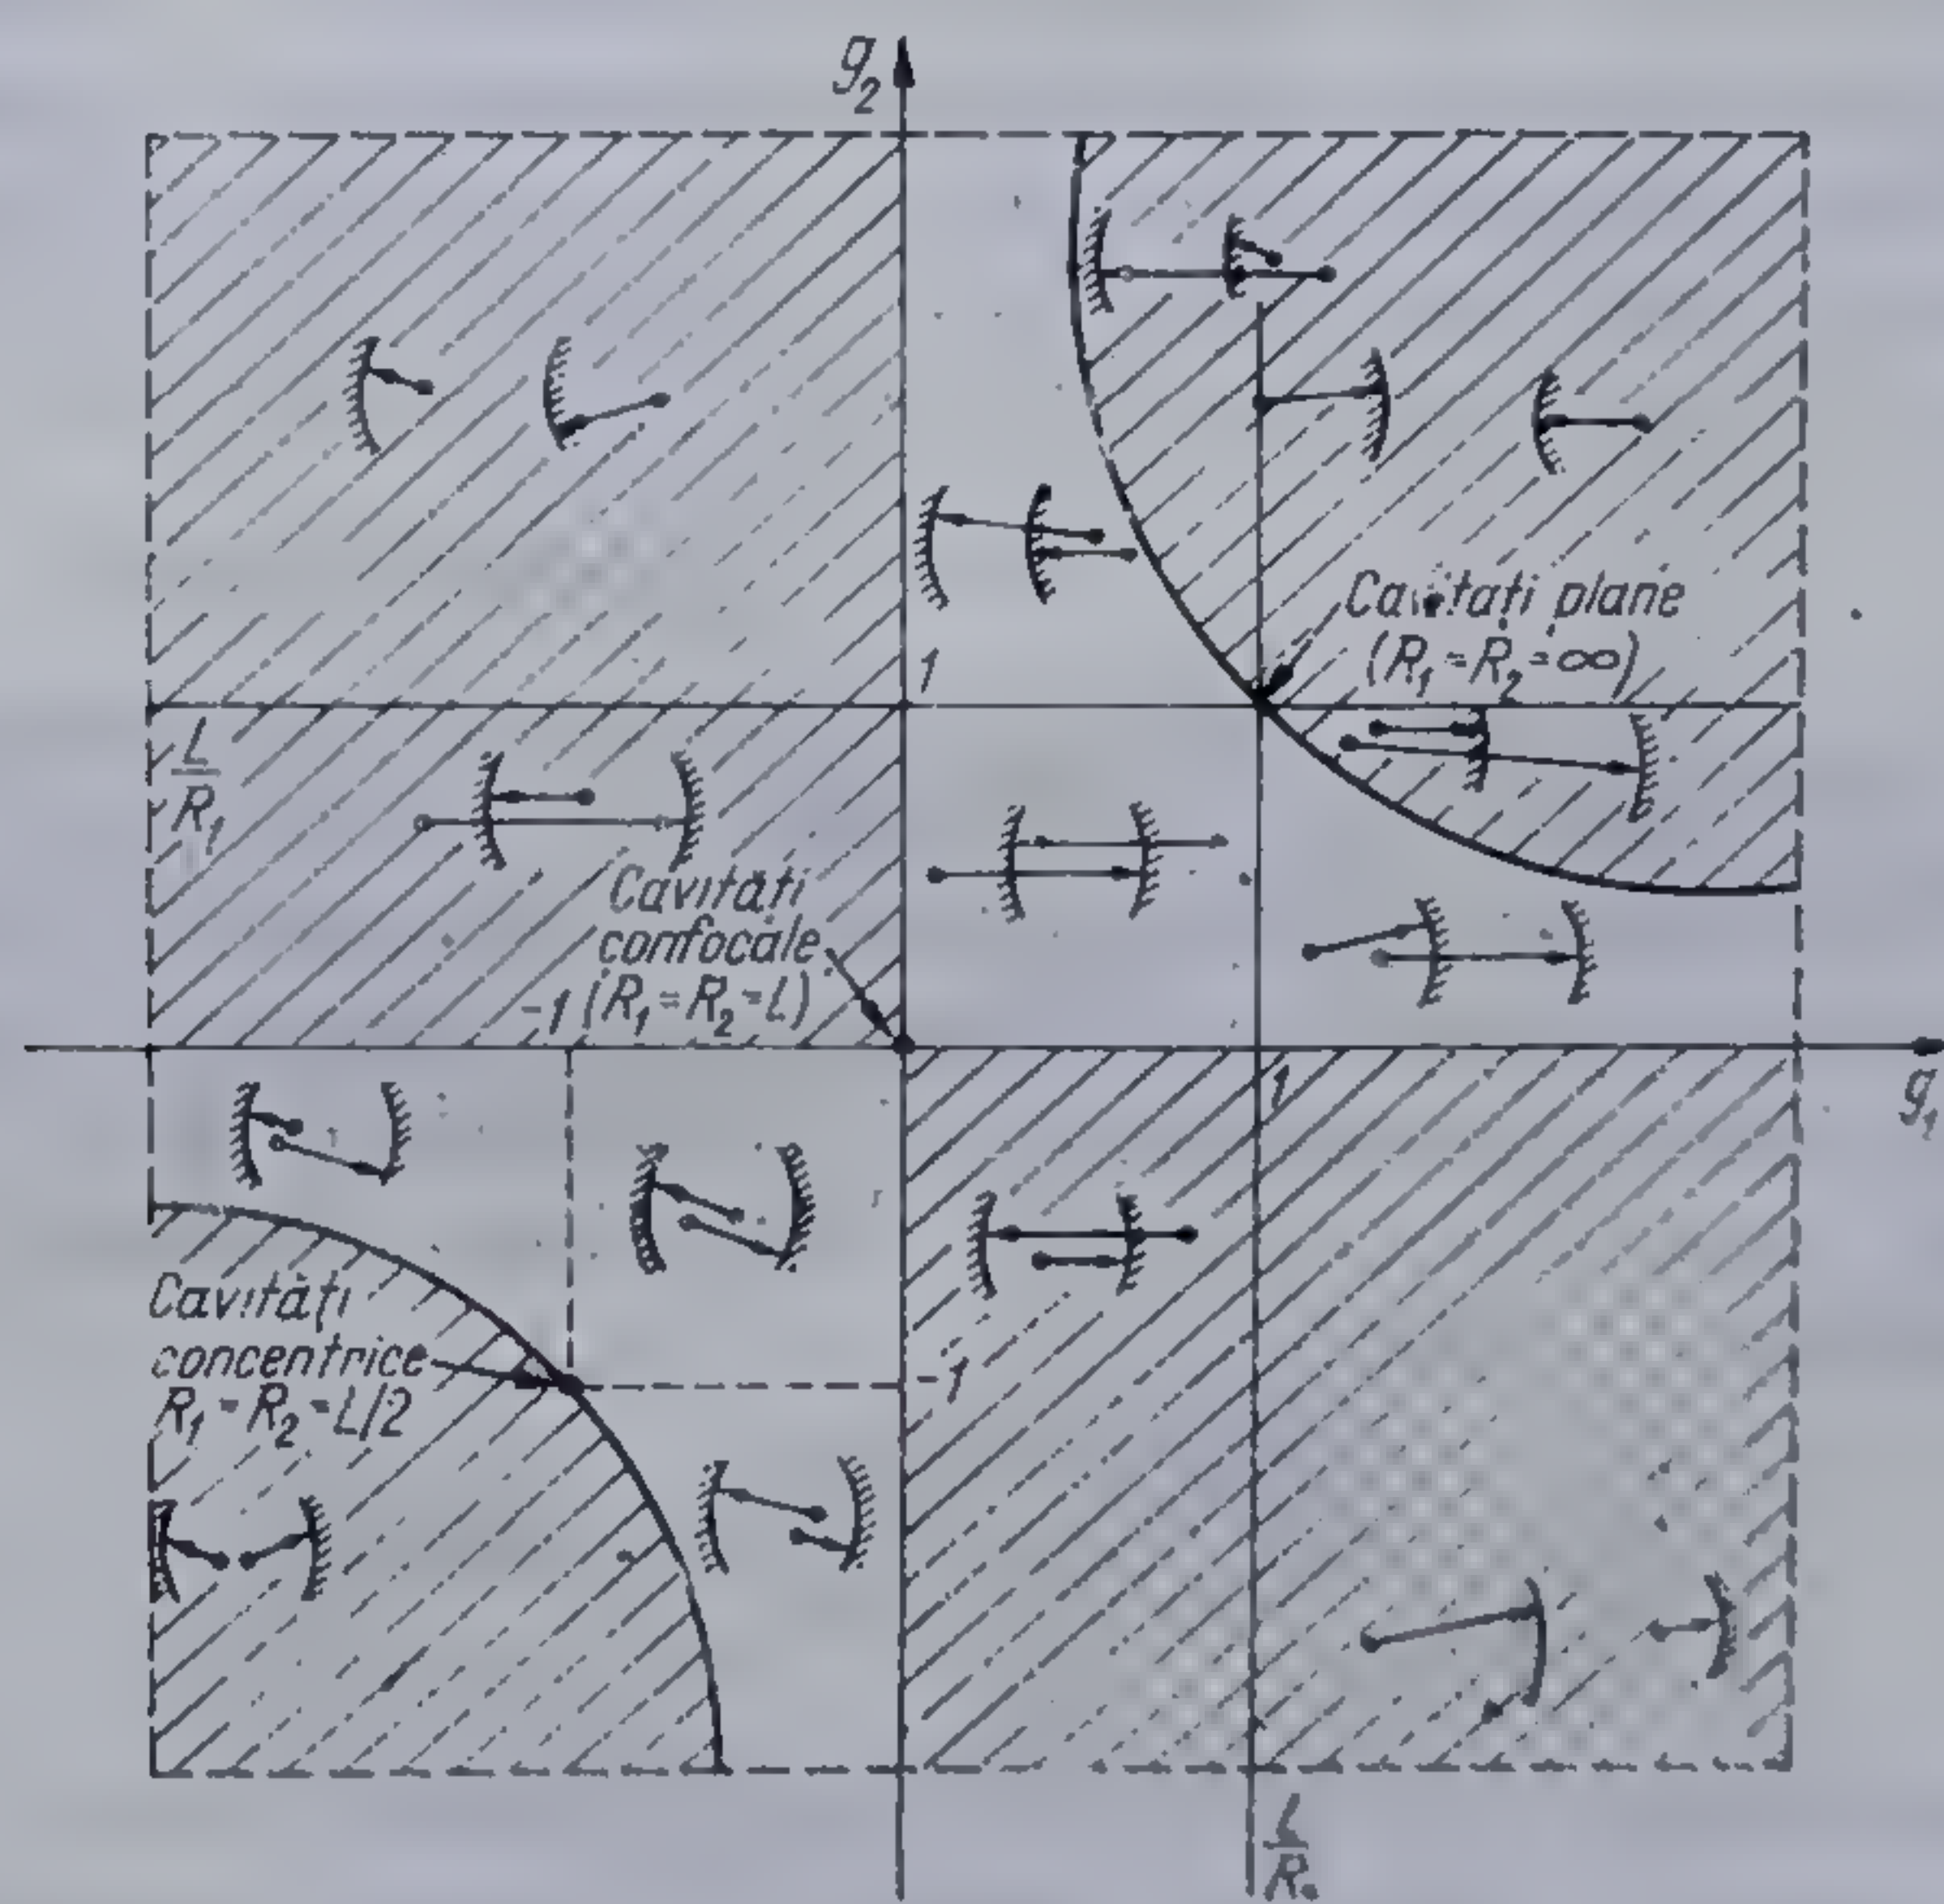 g₂
1
Cavități plane
(R₁ = R₂ = ∞)
L
R₁
Cavități
confocale
-1 (R₁ = R₂ = L)
1
g₁
Cavități
concentrice
R₁ = R₂ = L/2
-1
L
R